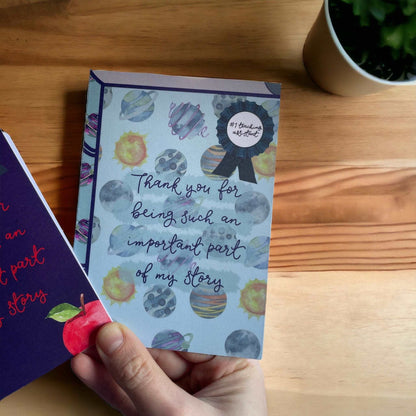 #1 teaching
assistant
Thank you for
being such an
important part
of my story
an
part
story